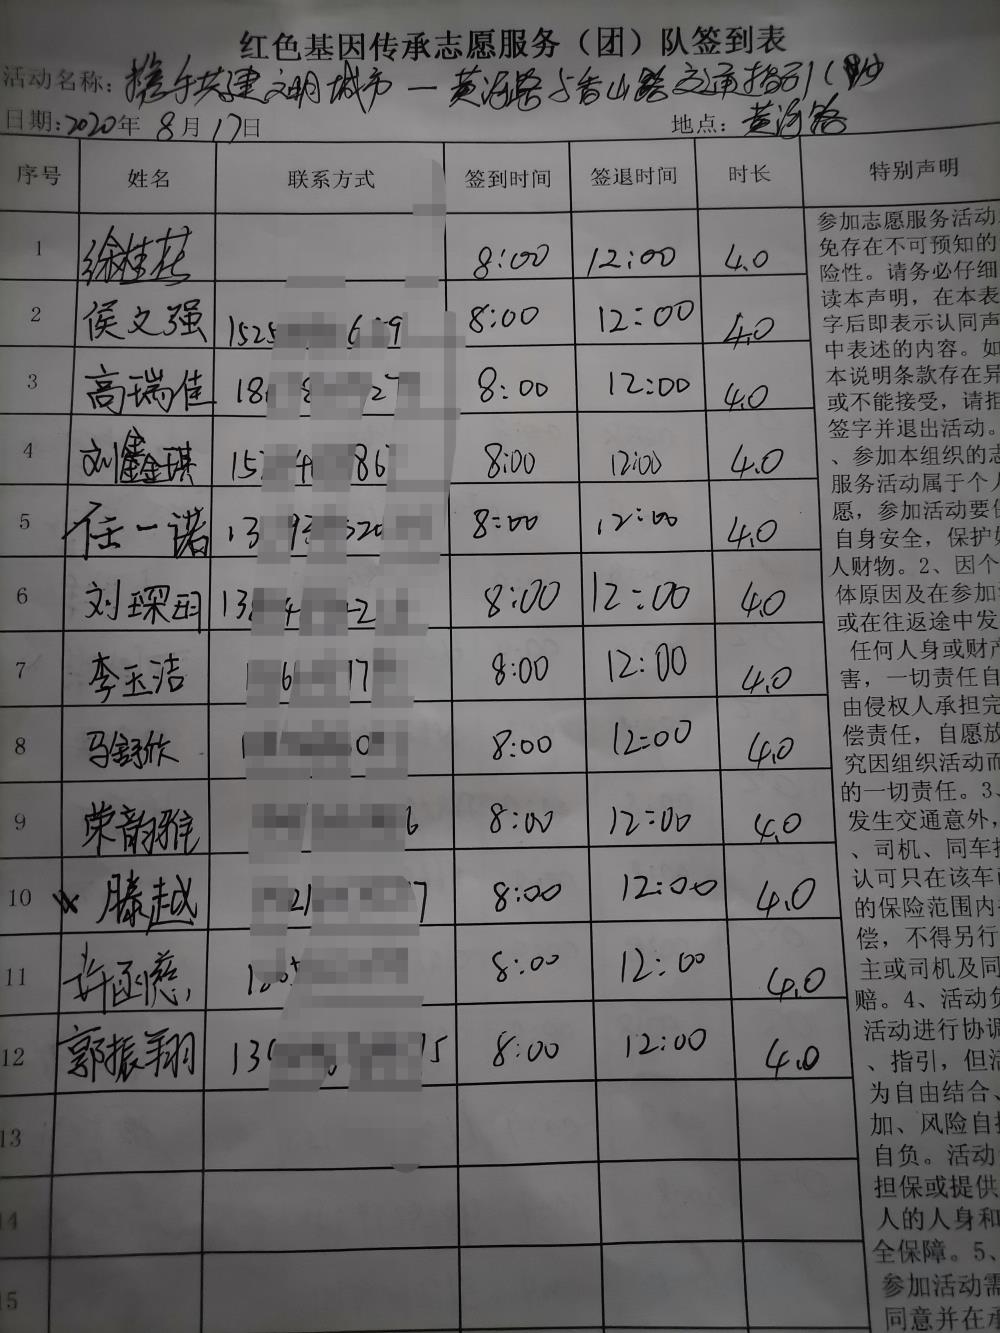 红色基因传承志愿服务（团）队签到表
活动名称：携手共建文明城市—黄河路与香山路交通指引（
日期：2020年8月17日 地点：黄河路
序号 姓名 联系方式 签到时间 签退时间 时长 特别声明
1 徐桂 8:00 12:00 4.0
2 侯文强 1525 6 9 8:00 12:00 4.0
3 高瑞佳 18 8 27 8:00 12:00 4.0
4 刘鑫琪 15 4 86 8:00 12:00 4.0
5 任一诺 13 9 20 8:00 12:00 4.0
6 刘琛玥 13 4 2 8:00 12:00 4.0
7 李玉洁 6 17 8:00 12:00 4.0
8 马舒欣 0 8:00 12:00 4.0
9 荣韵雅 6 8:00 12:00 4.0
10 滕越 21 7 8:00 12:00 4.0
11 许函慈 8:00 12:00 4.0
12 郭振翔 13 15 8:00 12:00 4.0
13
14
15
参加志愿服务活动
免存在不可预知的
险性。请务必仔细
读本声明，在本表
字后即表示认同声
中表述的内容。如
本说明条款存在异
或不能接受，请拒
签字并退出活动。
、参加本组织的志
服务活动属于个人
愿，参加活动要
自身安全，保护
人财物。2、因个
体原因及在参加
或在往返途中发
任何人身或财产
害，一切责任自
由侵权人承担完
偿责任，自愿放
究因组织活动而
的一切责任。3、
发生交通意外，
、司机、同车
认可只在该车
的保险范围内
偿，不得另行
主或司机及同
赔。4、活动负
活动进行协调
、指引，但活
为自由结合、
加、风险自担
自负。活动
担保或提供
人的人身和
全保障。5、
参加活动需
同意并在承